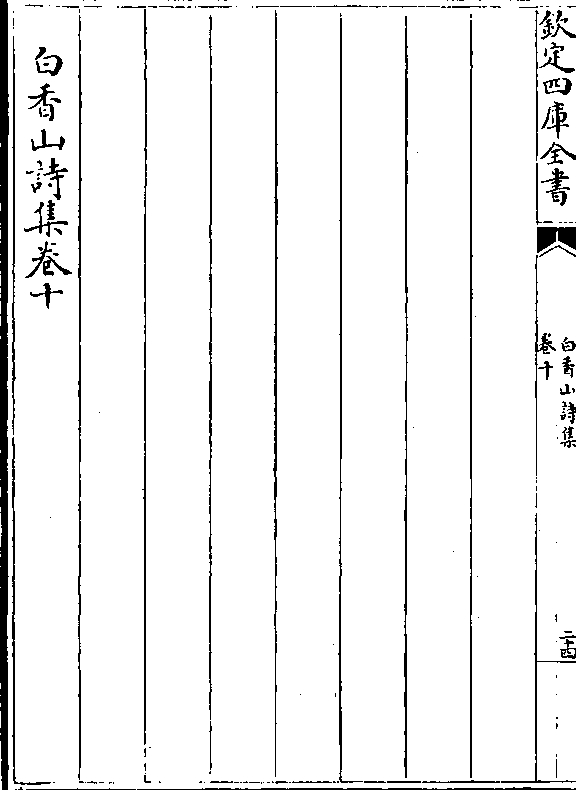 欽定四庫全書
白香山詩集
卷十
二十四
白香山詩集卷十